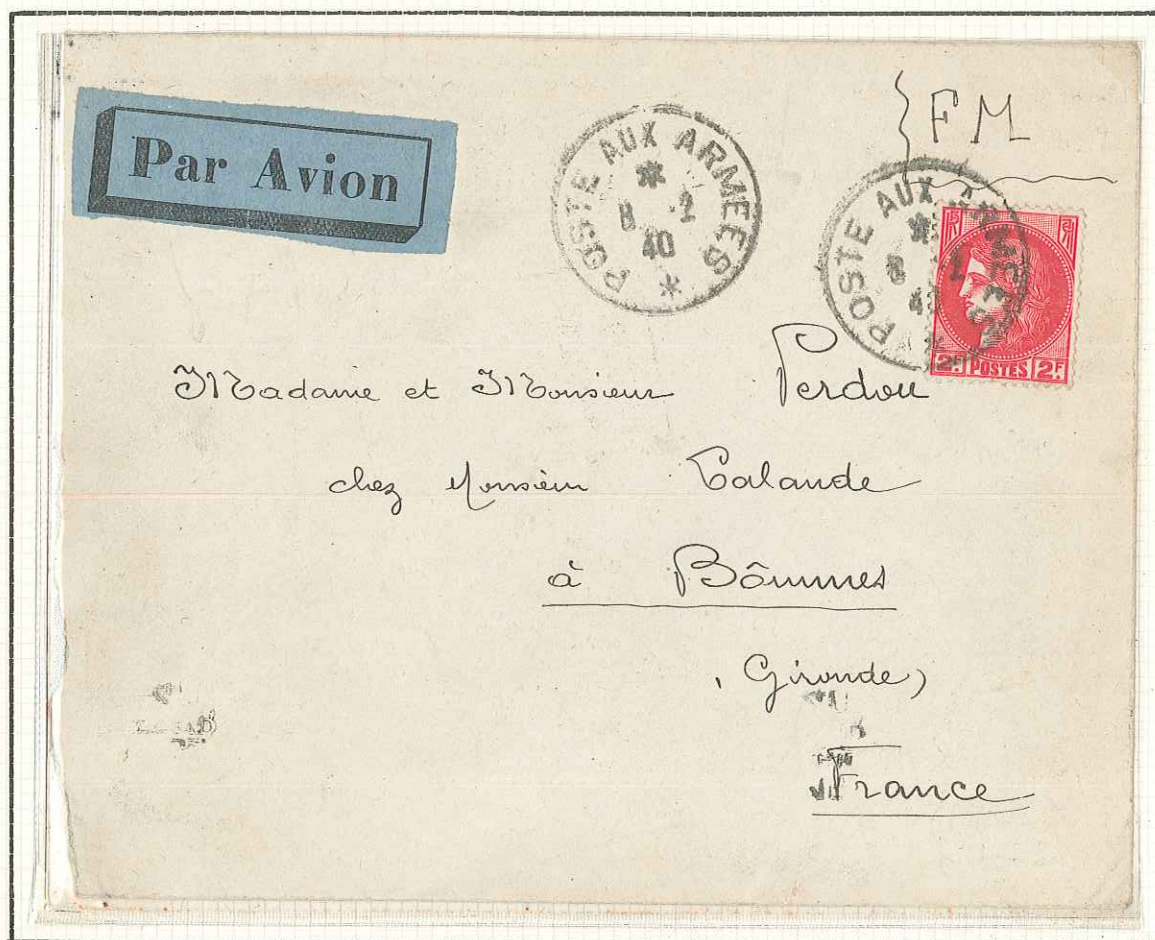 FM
Par Avion
POSTE AUX ARMEES
8 2
40
POSTE AUX ARMEES
8 2
POSTES 2F
Madame et Monsieur Perdou
chez Monsieur Calande
à Bômmes
(Gironde)
France